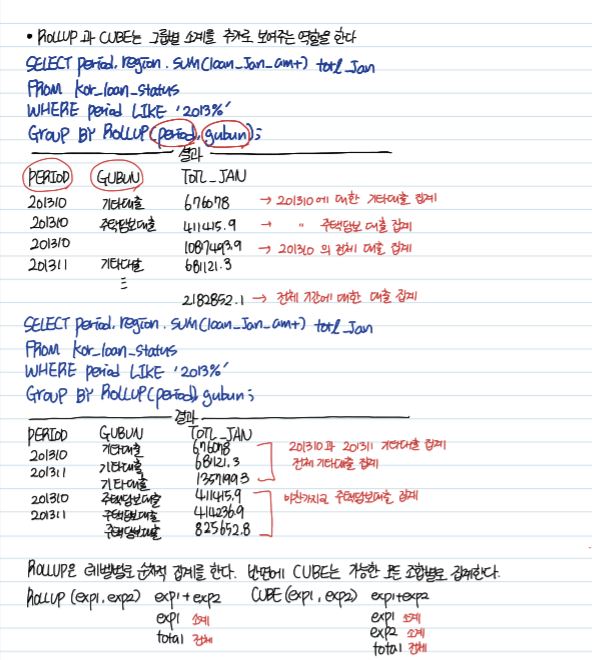 • ROLLUP과 CUBE는 그룹별 소계를 추가로 보여주는 역할을 한다
SELECT period, region, sum(loan_Jan_amt) totl_Jan
FROM kor_loan_status
WHERE period LIKE '2013%'
GROUP BY ROLLUP(period, gubun);
결과
PERIOD GUBUN TOTL_JAN
201310 기타대출 676078 → 201310에 대한 기타대출 집계
201310 주택담보대출 411415.9 → " 주택담보 대출 집계
201310 1087493.9 → 201310의 전체 대출 집계
201311 기타대출 681121.3
⋮
2182852.1 → 전체 기간에 대한 대출 집계
SELECT period, region, sum(loan_Jan_amt) totl_Jan
FROM kor_loan_status
WHERE period LIKE '2013%'
GROUP BY ROLLUP(period), gubun;
결과
PERIOD GUBUN TOTL_JAN
201310 기타대출 676078 201310과 201311 기타대출 집계
201311 기타대출 68121.3 전체 기타대출 집계
기타대출 1357199.3
201310 주택담보대출 411415.9 마찬가지로 주택담보대출 집계
201311 주택담보대출 414236.9
주택담보대출 825652.8
ROLLUP은 레벨별로 순차적 집계를 한다. 반면에 CUBE는 가능한 모든 조합별로 집계한다.
ROLLUP (exp1, exp2) exp1+exp2 CUBE (exp1, exp2) exp1+exp2
exp1 소계 exp1 소계
total 전체 exp2 소계
total 전체